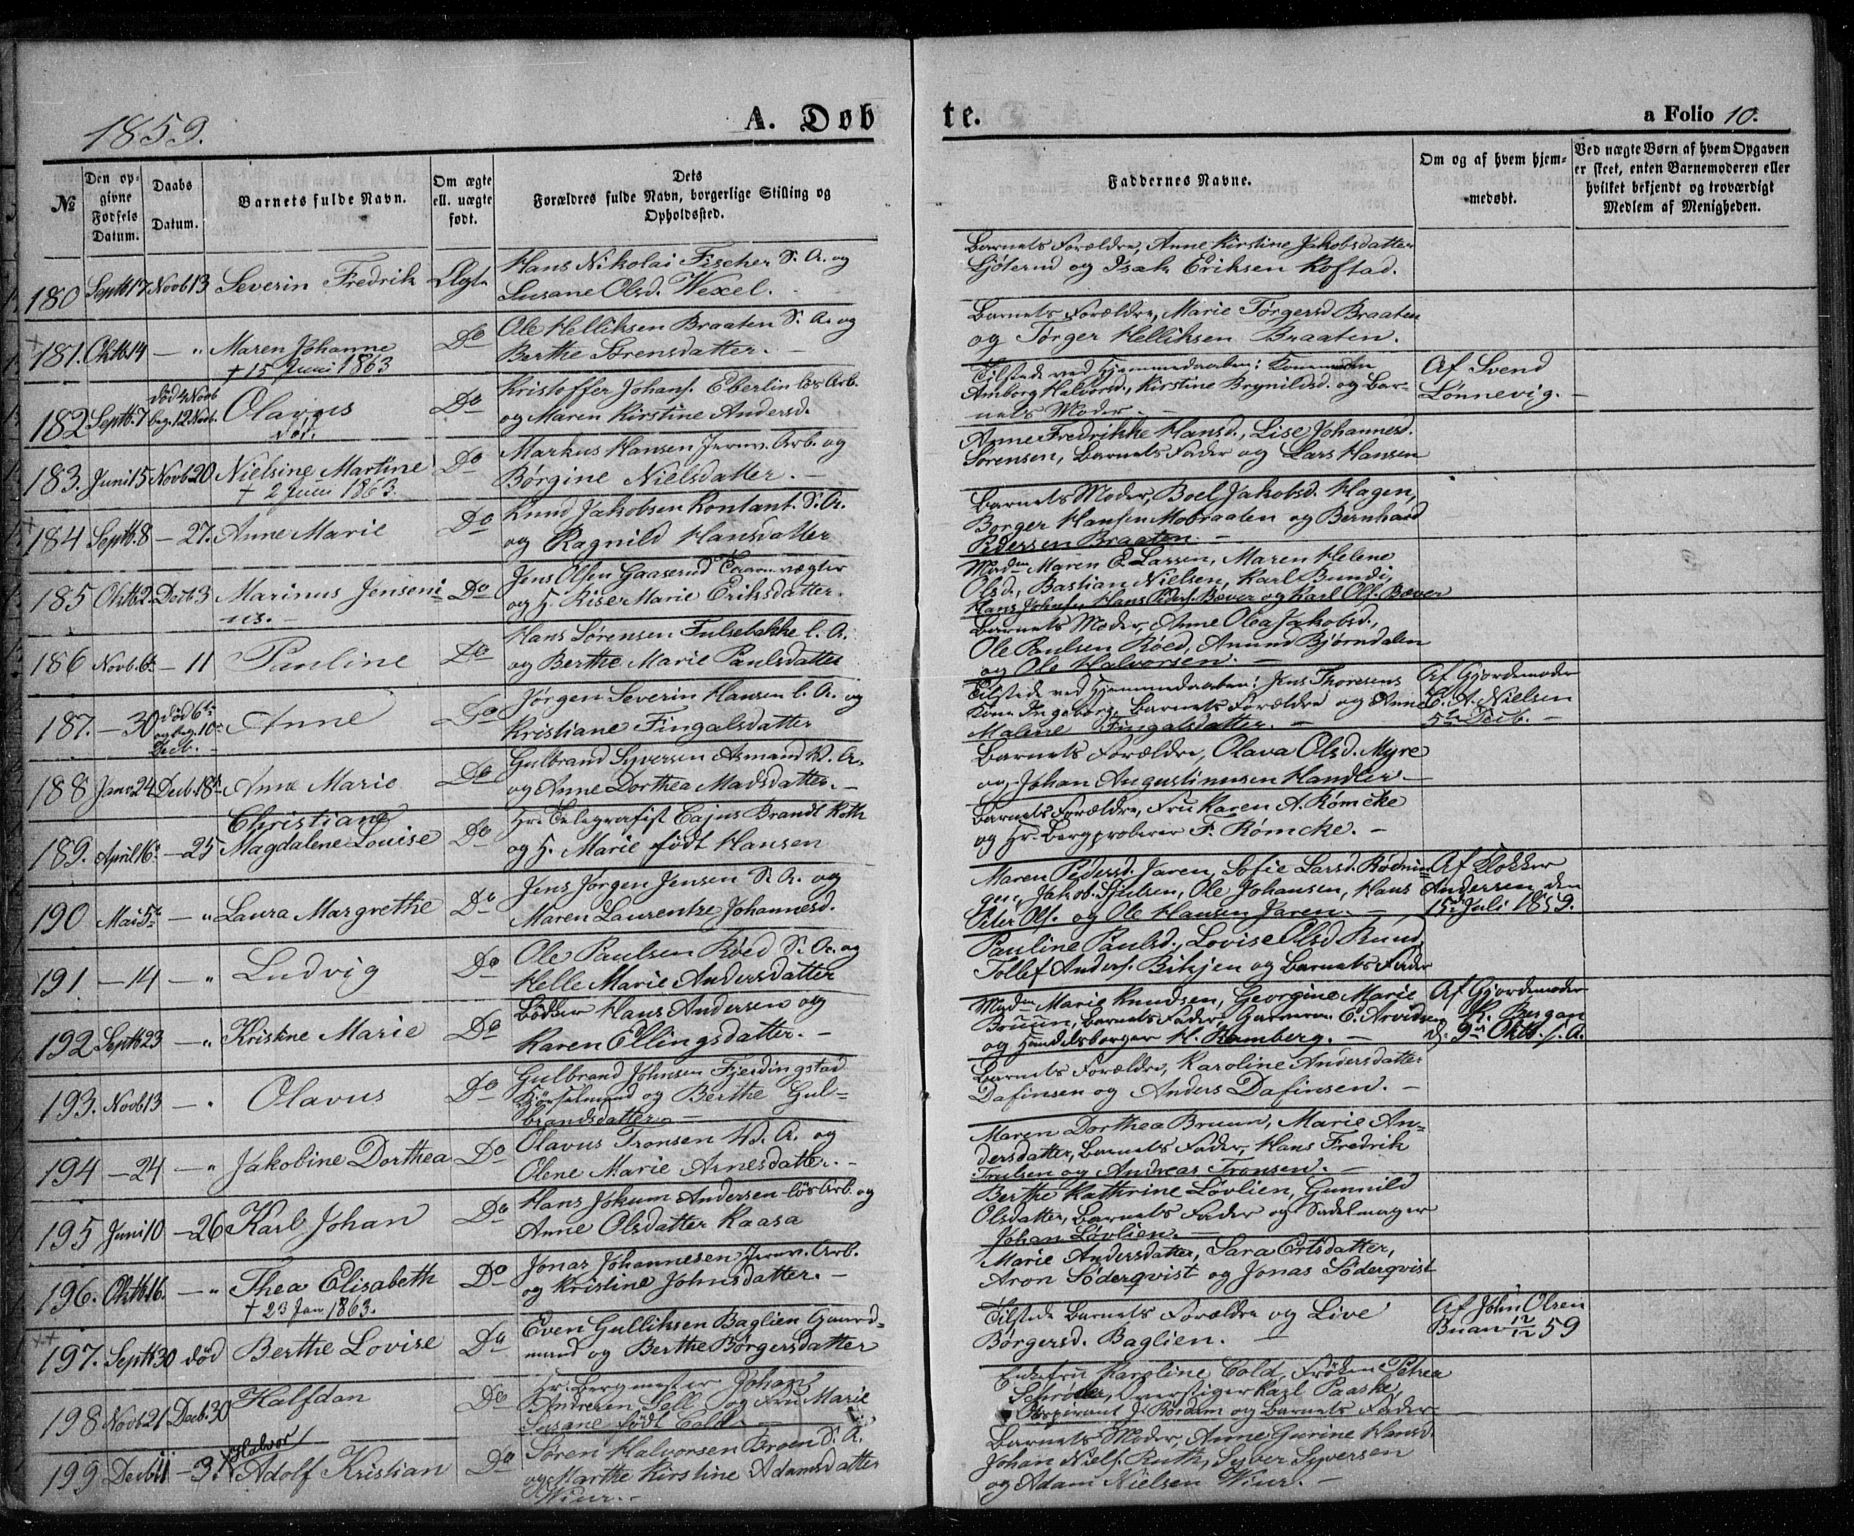 1859.
A. Døb
te.
a Folio 10.
№
Den opgivne Fødsels Datum.
Daabs Datum.
Barnets fulde Navn.
Om ægte ell. uægte født.
Dets Forældres fulde Navn, borgerlige Stilling og Opholdssted.
Faddernes Navne.
Om og af hvem hjemmedøbt.
Ved uægte Børn af hvem Opgaven er skeet, enten Barnemoderen eller hvilket bekjendt og troværdigt Medlem af Menigheden.
180 Septb 17 Novb 13 Severin Fredrik Ægte Hans Nikolai Fischer S. A. og
Susane Olsd. Wexel.
Barnets Forældre, Anne Kirstine Jakobsdatter
og Isak Eriksen Koftad.
181. Oktb 14 — " Maren Johanne Do Ole Helliksen Braaten S. A. og
† 15 Juni 1863 Berthe Sørensdatter.
Barnets Forældre, Marie Tørgersd Braaten
og Tørger Helliksen Braaten.
182 Septb. 7 død 4 Novb beg. 12 Novb. Olaves Do Kristoffer Johans. Eberlin løs Arb.
Død. og Maren Kirstine Andersd.
Tilstede ved Hjemmedaaben: Konemoen
Amborg Halvord., Kirstine Brynildsd. og Bar-
nets Moder. —
Af Svend
Lønnevig. —
183. Juni 15 Novb 20 Nielsine Martine Do Markus Hansen Jernv. Arb. og
† 2 Juni 1863. Børgine Nielsdatter.
Anne Fredrikke Hansd., Lise Johannesd.
Sørensen, Barnets Fader og Lars Hansen
184 Septb. 8 — 27. Anne Marie Do Knud Jakobsen Kontant. S. A.
og Ragnild Hansdatter
Barnets Moder, Boel Jakobsd. Hagen,
Borger Hansen Mobraaten og Bernhard
Pedersen Braaten. —
185 Oktb 2. Decb 3 Marinus Jenseni- Do Jens Olsen Gaaserud Taarnvægter
us. — og H. Rise Marie Eriksdatter.
Madm Maren E. Larsen, Maren Helene
Olsd., Bastian Nielsen, Karl Bundi,
Hans Johns., Hans Peders. Bever og Karl Ols. Bever
186 Novb. 6 — 11 Pauline Do Hans Sørensen Fulsebakke l. A.
og Berthe Marie Paulsdatter
Barnets Moder, Anne Olea Jakobsd.,
Ole Paulsen Røed, Amund Bjørndalen
og Ole Halvorsen. —
187. — 30 død 6te og beg. 10de Decb. — Anne Do Jørgen Severin Hansen l. A. og
Kristiane Fingalsdatter
Tilstede ved Hjemmedaaben: Jens Thoresens
Kone Ingeborg, Barnets Forældre og Anne
Malene Fingalsdatter. —
Af Gjordemoder
A. Nielsen
5te Decb. —
188 Janv 24 Decb. 18de Anne Marie Do Gulbrand Syversen Asmand V. A.
og Anne Dorthea Madsdatter. —
Barnets Forældre, Olava Olsd. Myre
og Johan Augustinusen Handler —
189. April 16 — 25 Christiane
Magdalene Louise Do Hr. Telegrafist Cajus Brandt Roth
og H. Marie født Hansen
Barnets Forældre, Fru Karen A. Rømcke
og Hr. Bergproberer F. Rømcke. —
190 Mai 5te — " Laura Margrethe Do Jens Jørgen Jensen S. A. og
Maren Laurentze Johannesd.
Maren Pedersd. Jaren, Sofie Larsd. Rødnin-
gen, Jakob Paulsen, Ole Johansen, Hans
Peter Ols. og Ole Hansen Jaren. —
Af Klokker
Andersen den
15de Juli 1859.
191 — 14 — " Ludvig Do Ole Paulsen Røed S. A. og
Helle Marie Andersdatter
Pauline Paulsd., Lovise Olsd Rund,
Tollef Anders. Bikjen og Barnets Fader
192 Septb 23 — " Kristine Marie Do Bødker Hans Andersen og
Karen Ellingsdatter. —
Madm Marie Knudsen, Georgine Marie
Bruun, Barnets Fader, Garveren C. Arvidsen
og Handelsborger H. Ramberg. —
Af Gjordemoder
K. Bergan
d. 9de Oktb. s. A.
193. Novb 13 — " Olavus Do Gulbrand Johnsen Fjerdingstad
Kjørselmand og Berthe Gul-
brandsdatter. —
Barnets Forældre, Karoline Andersdatter
Dafinsen og Anders Dafinsen. —
194 — 24 — " Jakobine Dorthea Do Olavus Tronsen V. A. og
Olene Marie Arnesdatter. —
Maren Dorthea Bruun, Marie An-
dersdatter, Barnets Fader, Hans Fredrik
Trulsen og Andreas Tronsen. —
195 Juni 10 — 26 Karl Johan Do Hans Jokum Andersen løs Arb. og
Anne Olsdatter Kaasa
Berthe Kathrine Løvlien, Gunnild
Olsdatter, Barnets Fader og Sadelmager
Johan Løvlien. —
196. Oktb 16. — " Thea Elisabeth Do Jonas Johannesen Jernv. Arb.
† 23 Jan 1863. og Kristine Johnsdatter. —
Marie Andersdatter, Sara Ertsdatter,
Aron Söderqvist og Jonas Söderqvist
197. Septb 30 død Berthe Lovise Do Even Gulliksen Baglien Gaard-
mand og Berthe Børgersdatter
Tilstede Barnets Forældre og Live
Børgersd. Baglien. —
Af John Olsen
Buan 12/12 59
198 Novb 21 Decb. 30 Halfdan Do Hr. Bergmester Johan
Andresen Sell og Fru Marie
Susane født Cold. —
Enkefru Karoline Cold, Frøken Petrea
Schrøder, Overstiger Karl Paaske,
Aspirant J. Rørdam og Barnets Fader.
199 Decb 11 — 31 Halvor
Adolf Kristian Do Søren Halvorsen Broen S. A.
og Marthe Kirstine Adamsdatter
Wiur. —
Barnets Moder, Anne Gurine Hansd.
Johan Niels. Ruth, Syver Syversen
og Adam Nielsen Wiur. —